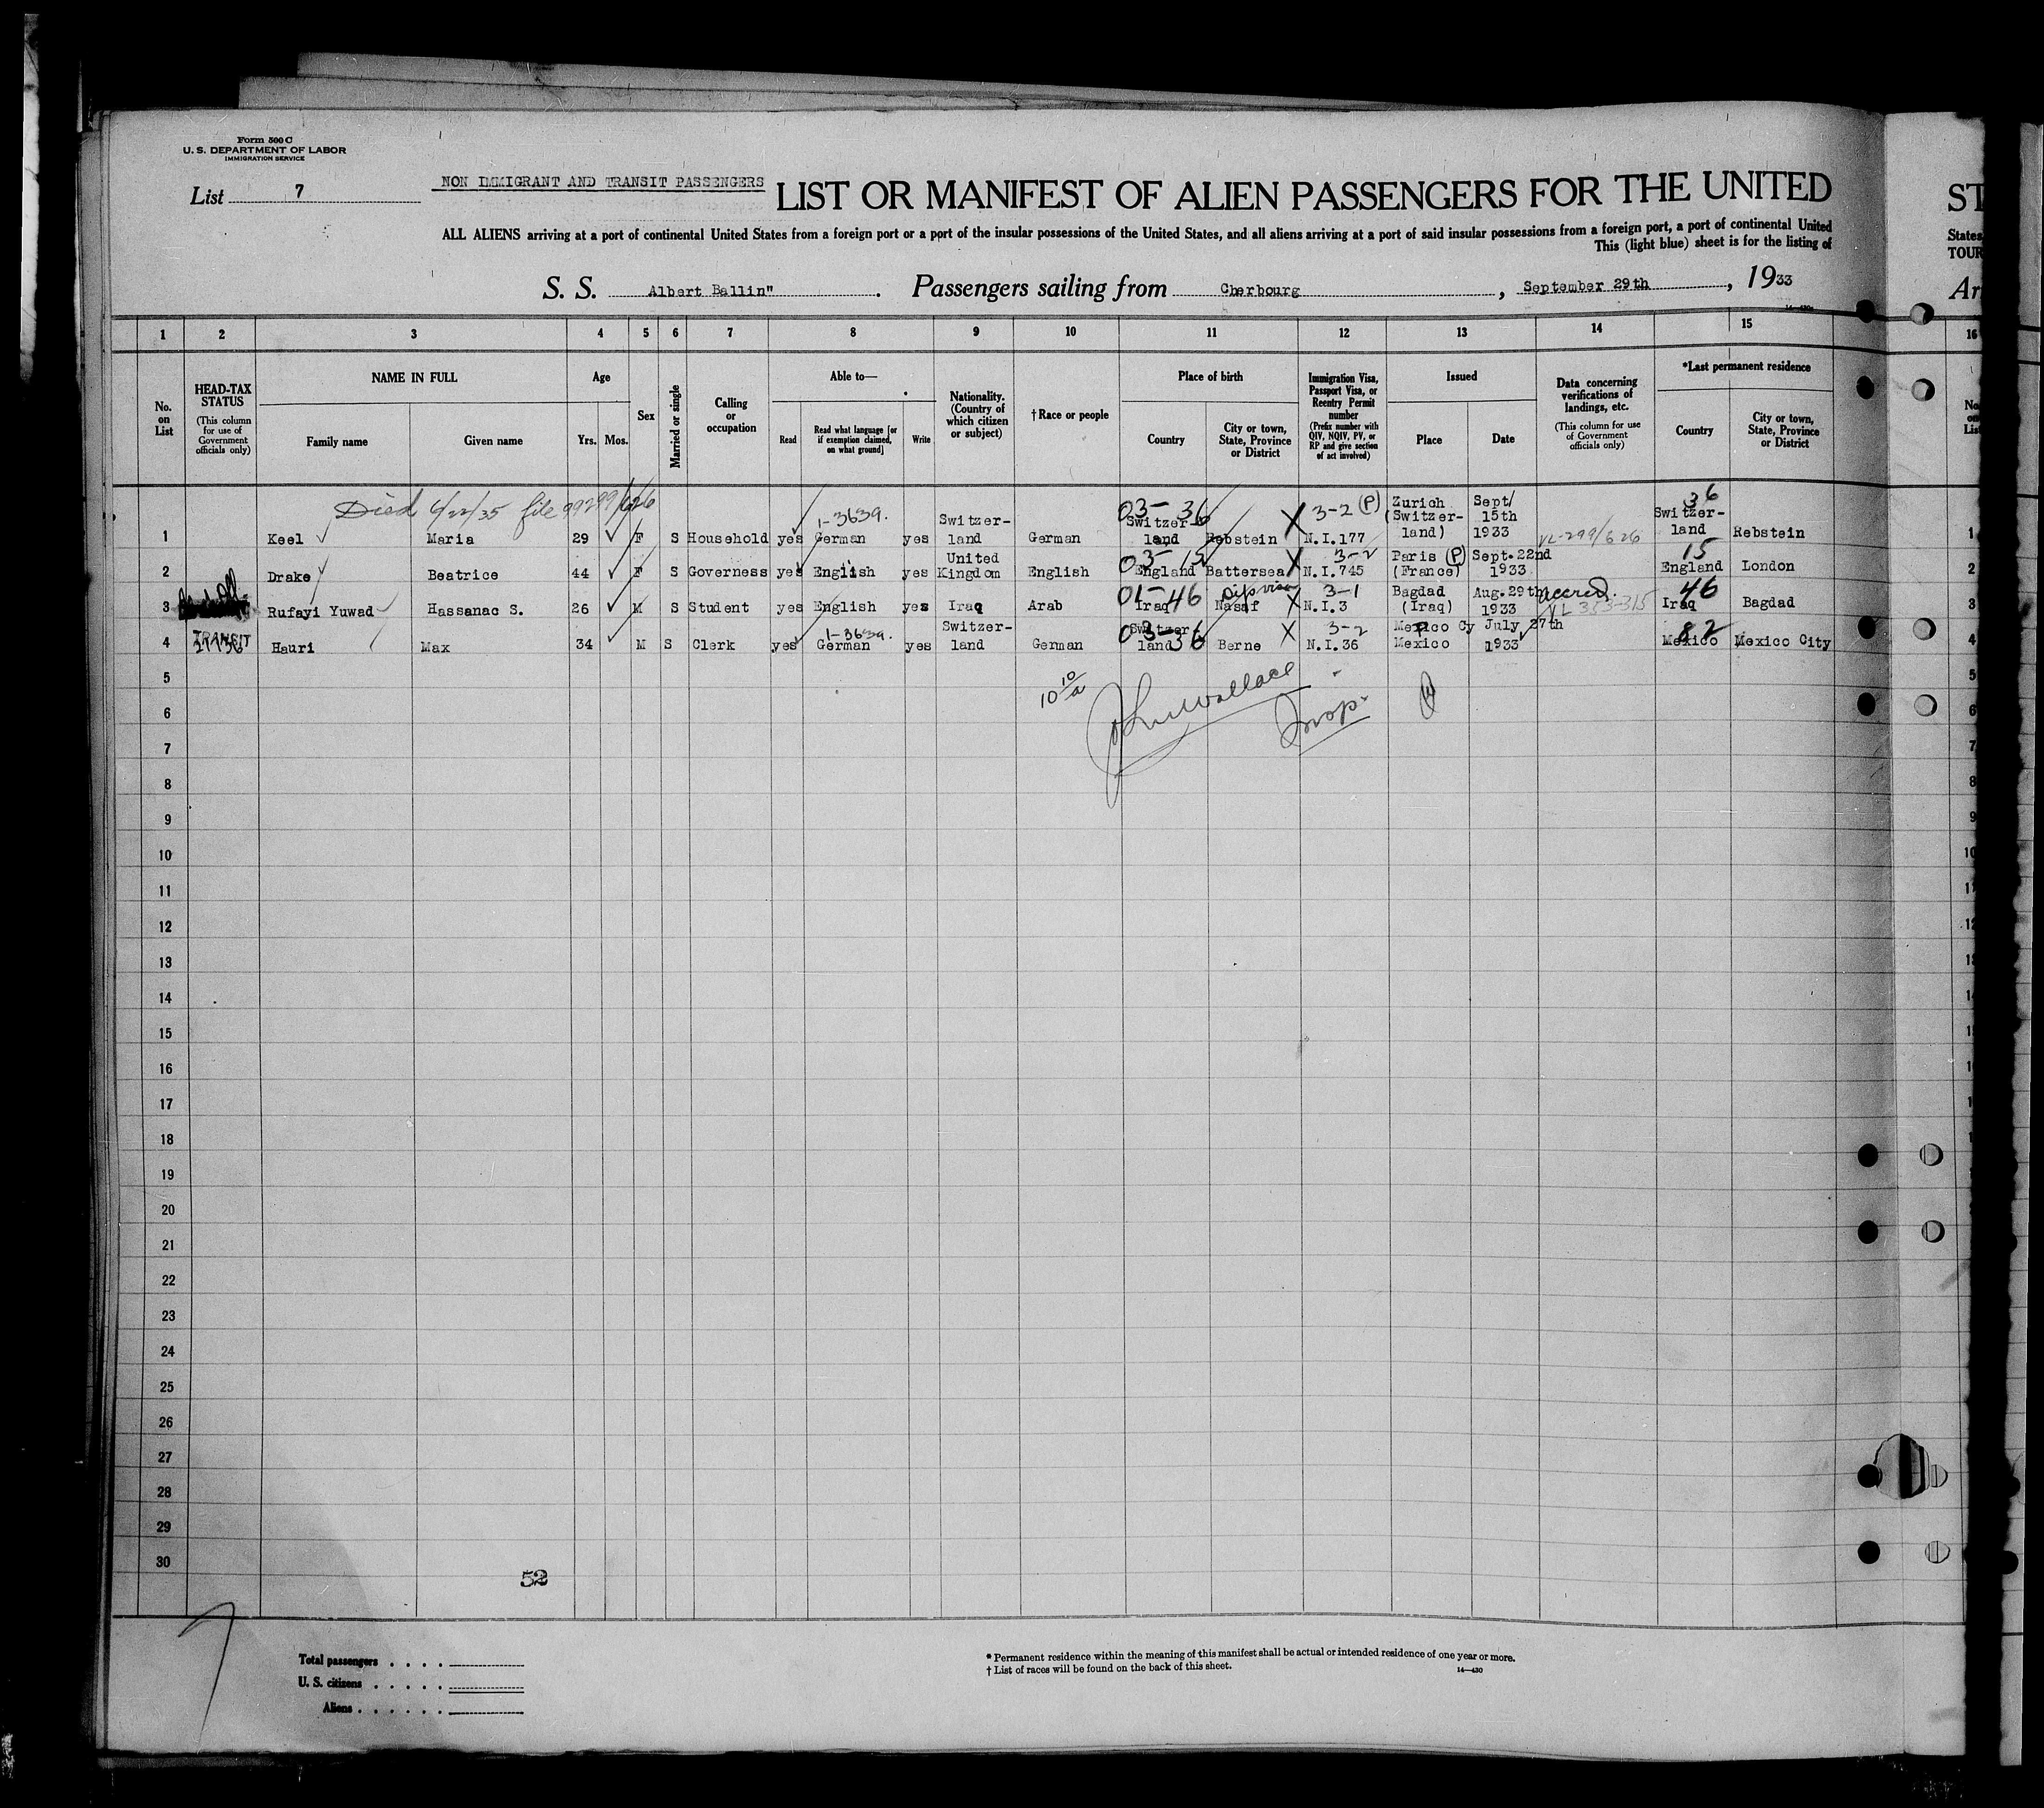 Form 500 C
U. S. DEPARTMENT OF LABOR
IMMIGRATION SERVICE
List 7
NON IMMIGRANT AND TRANSIT PASSENGERS LIST OR MANIFEST OF ALIEN PASSENGERS FOR THE UNITED ST
ALL ALIENS arriving at a port of continental United States from a foreign port or a port of the insular possessions of the United States, and all aliens arriving at a port of said insular possessions from a foreign port, a port of continental United States
This (light blue) sheet is for the listing of TOUR
S. S. Albert Ballin". Passengers sailing from Cherbourg, September 29th, 1933 Ar
1 2 3 4 5 6 7 8 9 10 11 12 13 14 15 16
No. on List
HEAD-TAX STATUS
(This column for use of Government officials only)
NAME IN FULL
Family name
Given name
Age
Yrs. Mos.
Sex
Married or single
Calling or occupation
Able to—
Read
Read what language [or if exemption claimed, on what ground]
Write
Nationality. (Country of which citizen or subject)
† Race or people
Place of birth
Country
City or town, State, Province or District
Immigration Visa, Passport Visa, or Reentry Permit number
(Prefix number with QIV, NQIV, PV, or RP and give section of act involved)
Issued
Place
Date
Data concerning verifications of landings, etc.
(This column for use of Government officials only)
*Last permanent residence
Country
City or town, State, Province or District
Died 6/22/35 file 99299/626
1 Keel Maria 29 F S Household yes 1-3639. German yes Switzer-land German 03-36 Switzer-land Rebstein X 3-2 (P) N.I.177 Zurich (Switzer-land) Sept/ 15th 1933 VL-299/626 36 Switzer-land Rebstein 1
2 Drake Beatrice 44 F S Governess yes English yes United Kingdom English 03-15 England Battersea X 3-2 N.I.745 Paris (P) (France) Sept.22nd 1933 15 England London 2
3 Rufayi Yuwad Hassanac S. 26 M S Student yes English yes Iraq Arab 01-46 Iraq Dip visa Nasaf X 3-1 N.I.3 Bagdad (Iraq) Aug.29th 1933 accred. VL 353-315 46 Iraq Bagdad 3
4 TRANSIT Hauri Max 34 M S Clerk yes 1-3639. German yes Switzer-land German 03-36 Switzer-land Berne X 3-2 N.I.36 Mexico Cy Mexico July 27th 1933 82 Mexico Mexico City 4
5 5
6 10 10/a Wallace Insp. 6
7 7
8 8
9 9
10 10
11
12
13
14
15
16
17
18
19
20
21
22
23
24
25
26
27
28
29
30
52
7
Total passengers
U. S. citizens
Aliens
* Permanent residence within the meaning of this manifest shall be actual or intended residence of one year or more.
† List of races will be found on the back of this sheet. 14—430